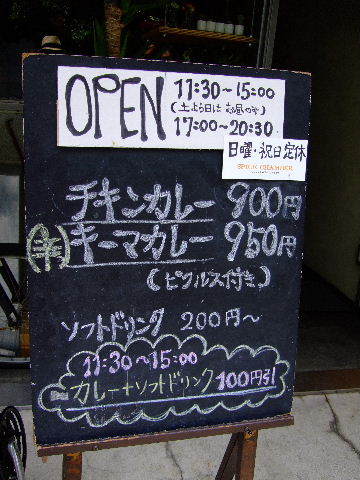 OPEN 11:30〜15:00
(土よう日は お昼のみ)
17:00〜20:30
日曜・祝日定休
チキンカレー 900円
キーマカレー 950円
(ピクルス付き)
ソフトドリンク 200円〜
11:30〜15:00
カレー+ソフトドリンク 100円引